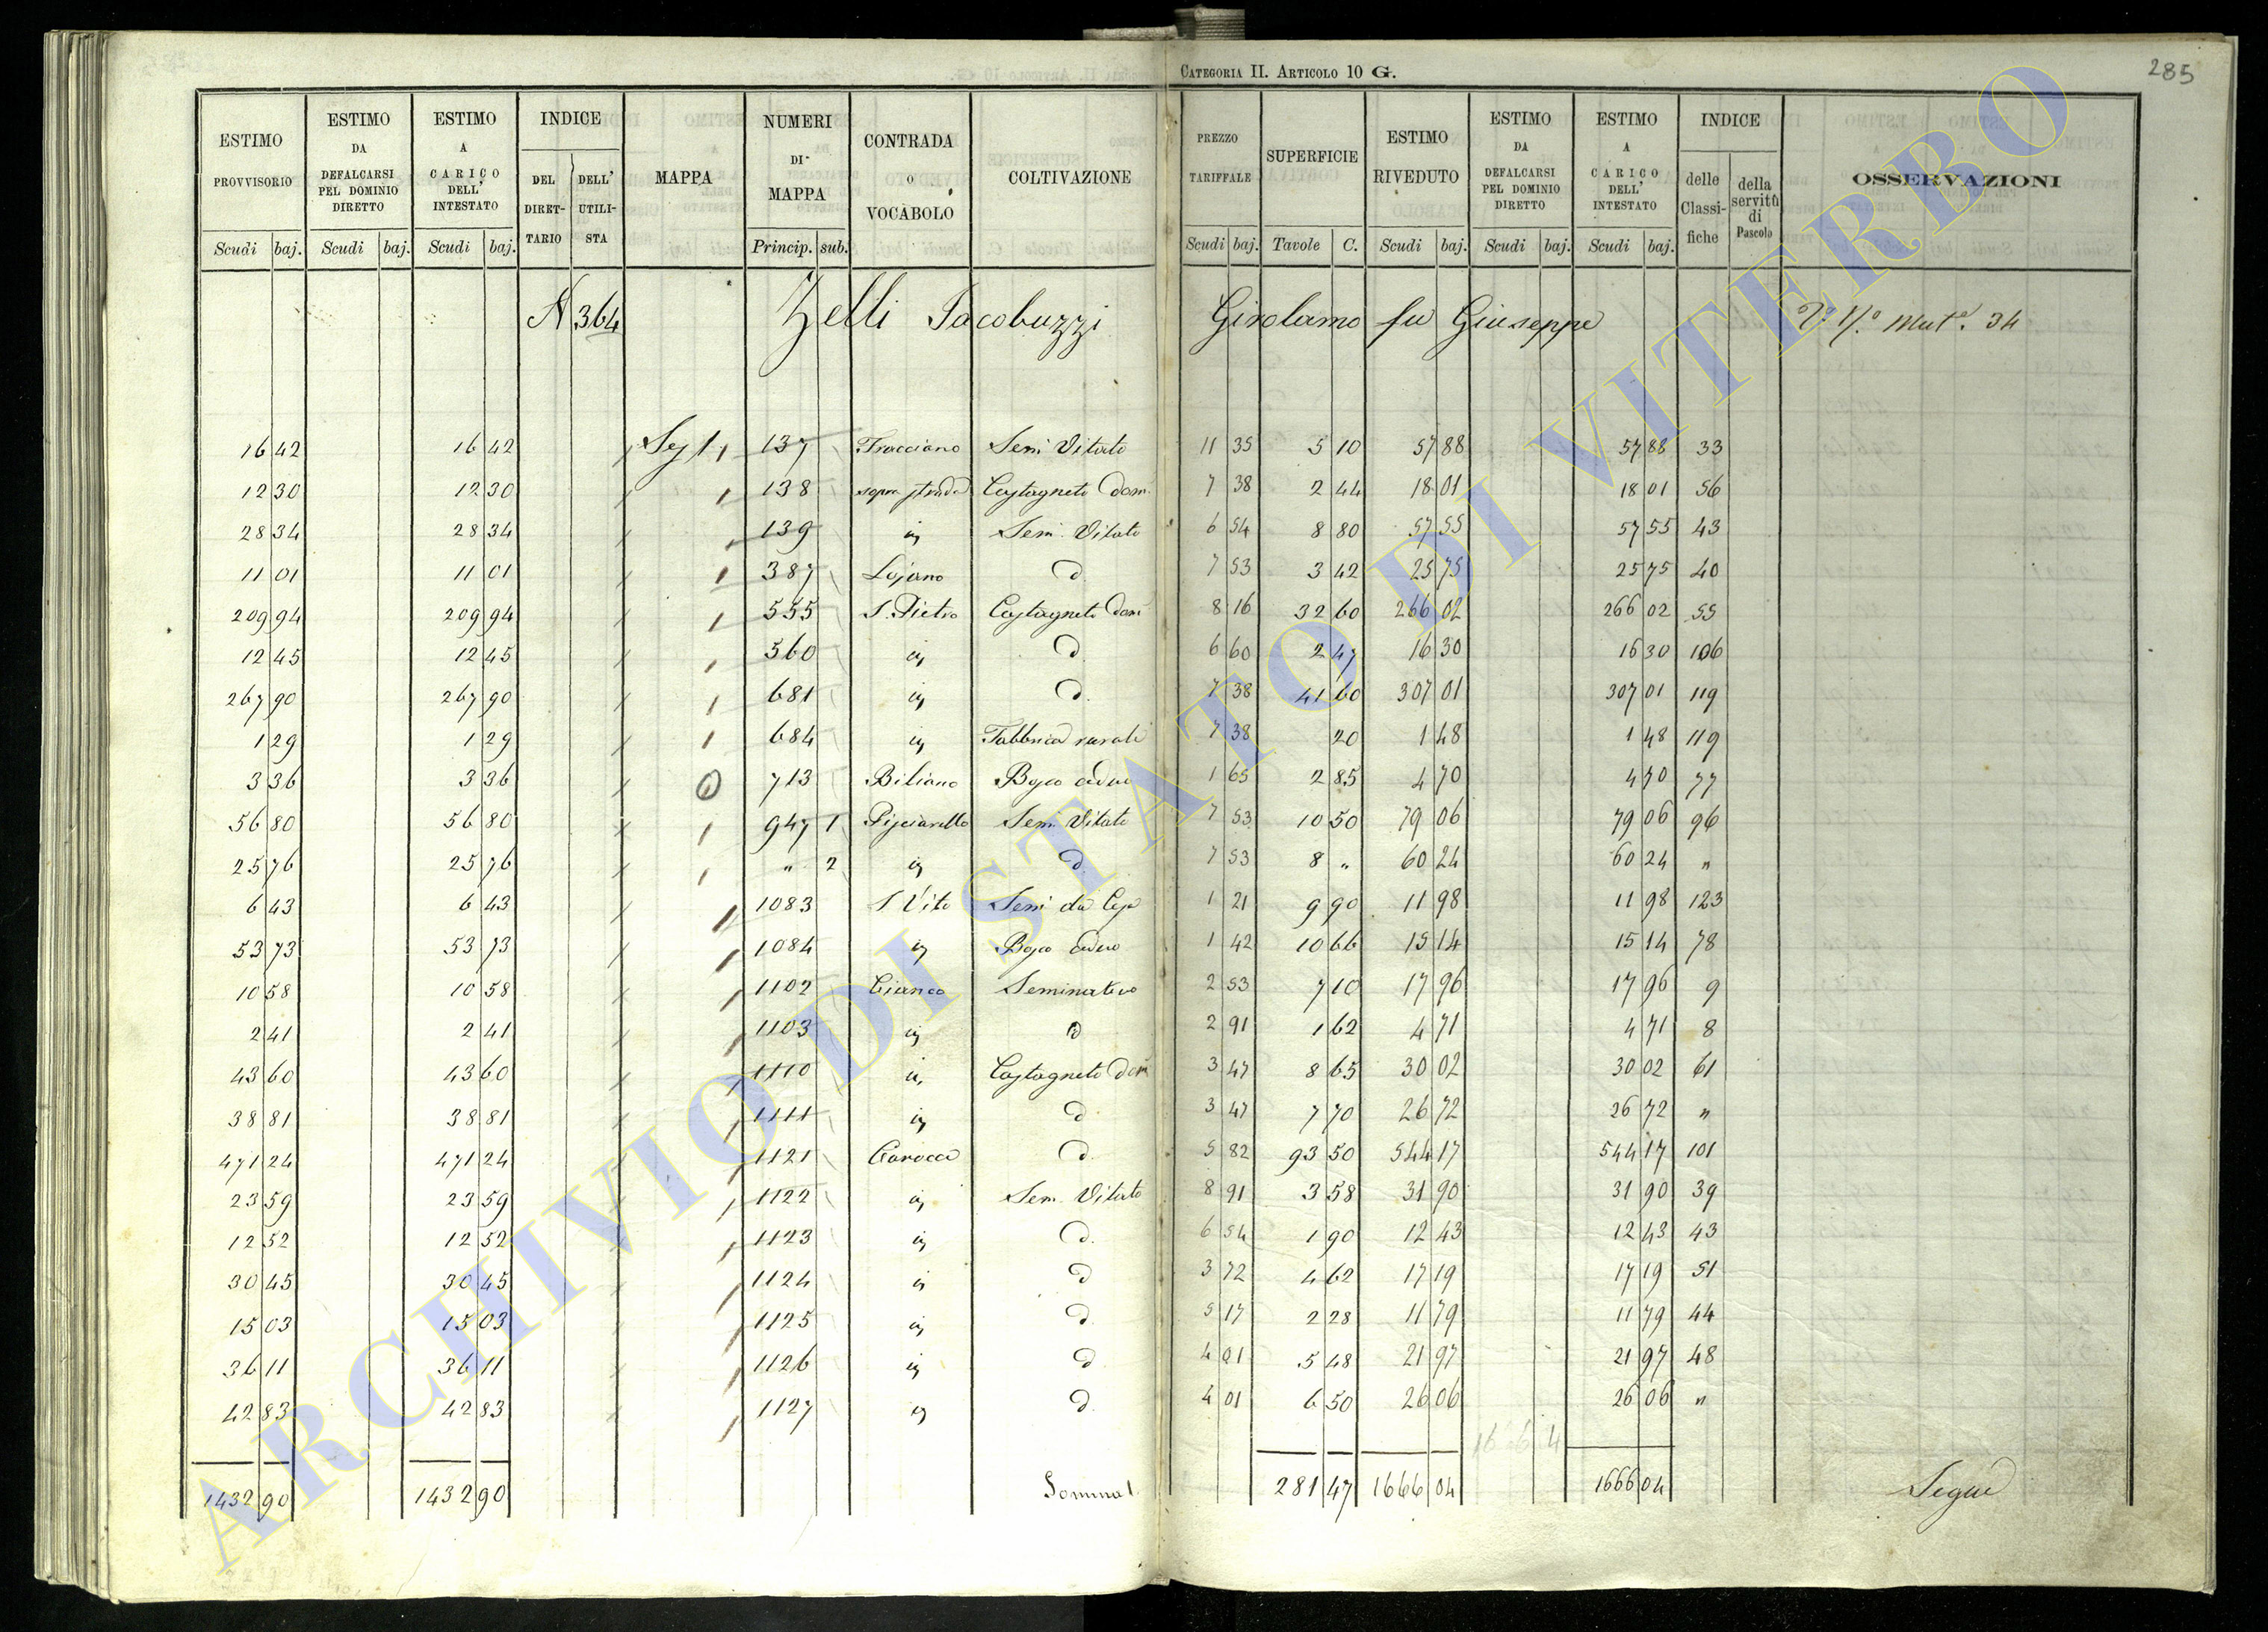 CATEGORIA II. ARTICOLO 10 G.
285
ESTIMO PROVVISORIO Scudi baj.
ESTIMO DA DEFALCARSI PEL DOMINIO DIRETTO Scudi baj.
ESTIMO A CARICO DELL' INTESTATO Scudi baj.
INDICE DEL DIRETTARIO DELL' UTILISTA
MAPPA
NUMERI DI MAPPA Princip. sub.
CONTRADA O VOCABOLO
COLTIVAZIONE
PREZZO TARIFFALE Scudi baj.
SUPERFICIE Tavole C.
ESTIMO RIVEDUTO Scudi baj.
ESTIMO DA DEFALCARSI PEL DOMINIO DIRETTO Scudi baj.
ESTIMO A CARICO DELL' INTESTATO Scudi baj.
INDICE delle Classifiche della servitù di Pascolo
OSSERVAZIONI
N 364 Zelli Jacobuzzi Girolamo fu Giuseppe 34
16 42 16 42 137 Semi Vitato 11 35 5 10 57 88 57 88 33
12 30 12 30 138 sopra strada Castagneto dom. 7 38 2 44 18 01 18 01 56
28 34 28 34 139 id Sem. Vitato 6 54 8 80 57 55 57 55 43
11 01 11 01 387 Lojano d 7 53 3 42 25 75 25 75 40
209 94 209 94 555 S. Pietro Castagneto dom 8 16 32 60 266 02 266 02 55
12 45 12 45 560 id d 6 60 2 47 16 30 16 30 106
267 90 267 90 681 id d. 7 38 41 60 307 01 307 01 119
1 29 1 29 684 id Fabbrica rurale 7 38 20 1 48 1 48 119
3 36 3 36 713 Biliano Bosco ceduo 1 65 2 85 4 70 4 70 77
56 80 56 80 947 1 Pisciarello Sem. Vitato 7 53 10 50 79 06 79 06 96
25 76 25 76 " 2 id d. 7 53 8 " 60 24 60 24 "
6 43 6 43 1083 S Vito Semi da 1 21 9 90 11 98 11 98 123
53 73 53 73 1084 id Bosco ceduo 1 42 10 66 15 14 15 14 78
10 58 10 58 1102 Seminativo 2 53 7 10 17 96 17 96 9
2 41 2 41 1103 id d 2 91 1 62 4 71 4 71 8
43 60 43 60 1110 id Castagneto dom 3 47 8 65 30 02 30 02 61
38 81 38 81 1111 id d 3 47 7 70 26 72 26 72 "
471 24 471 24 1121 d. 5 82 93 50 544 17 544 17 101
23 59 23 59 1122 id Sem. Vitato 8 91 3 58 31 90 31 90 39
12 52 12 52 1123 id d. 6 54 1 90 12 43 12 43 43
30 45 30 45 1124 id d 3 72 4 62 17 19 17 19 51
15 03 15 03 1125 id d. 5 17 2 28 11 79 11 79 44
36 11 36 11 1126 id d 4 01 5 48 21 97 21 97 48
42 83 42 83 1127 id d. 4 01 6 50 26 06 26 06 "
1432 90 1432 90 281 47 1666 04 1666 04 Segue
ARCHIVIO DI STATO DI VITERBO